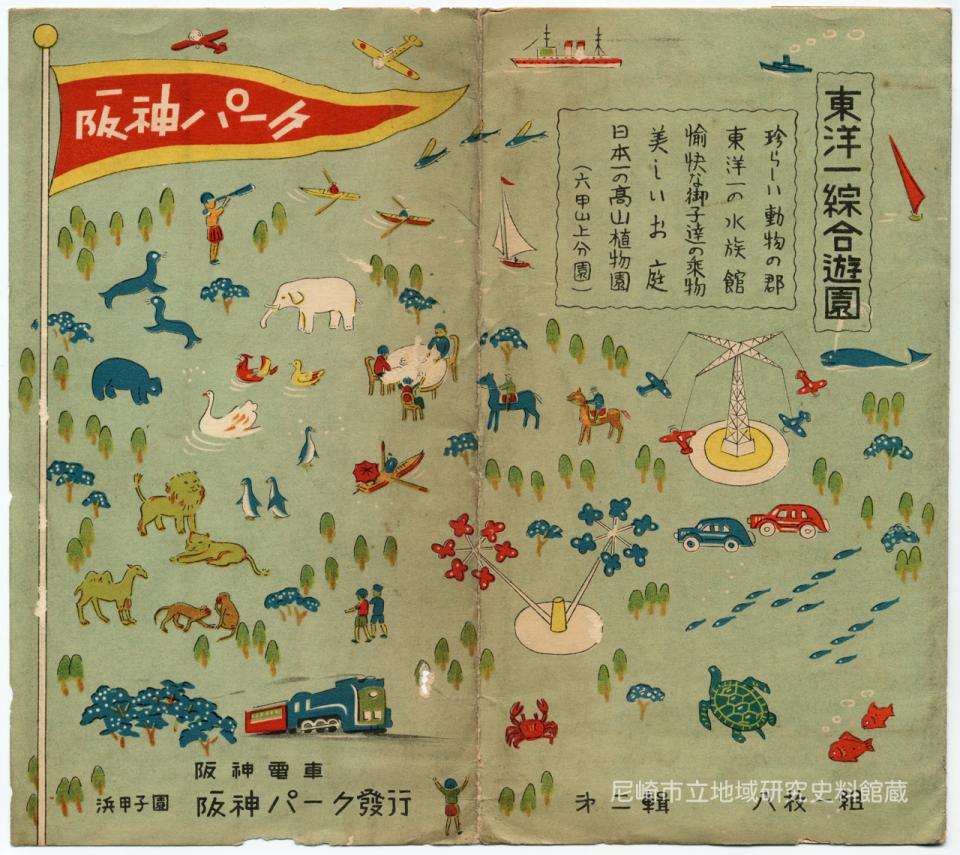 阪神パーク
東洋一綜合遊園
珍らしい動物の郡
東洋一の水族館
愉快な御子達の乗物
美しいお庭
日本一の高山植物園
（六甲山上分園）
阪神電車
浜甲子園 阪神パーク發行
輯 八枚一組
尼崎市立地域研究史料館蔵